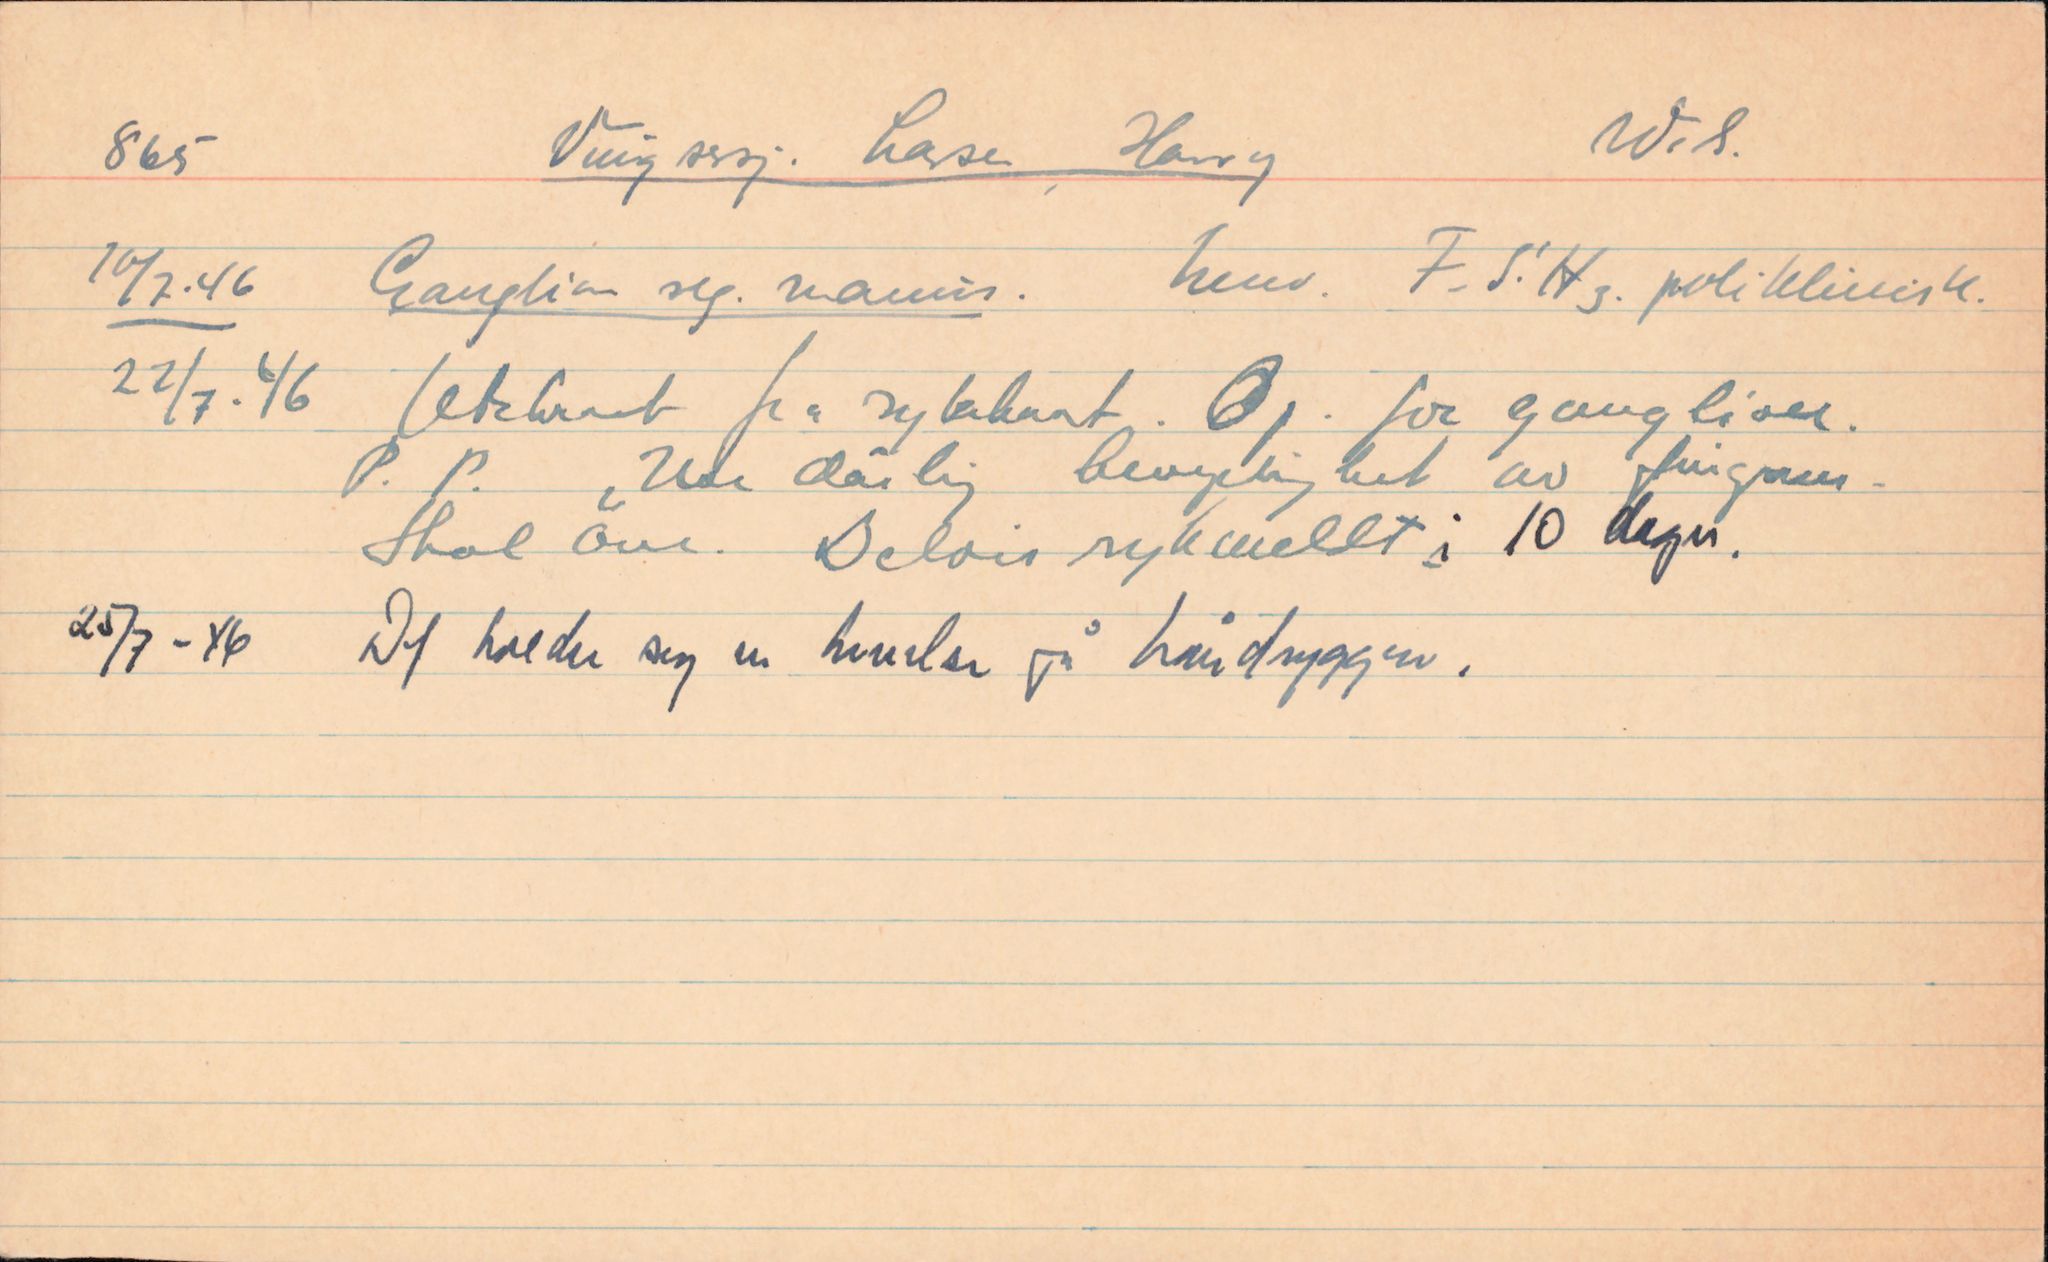 865 Vingsersj. Larsen, Harry W.S.
10/7.46 Ganglion reg. manus. henv. F.S.H 3. poliklinisk.
22/7.46 Utskrevet fra sykehuset. Op. for ganglion.
P. P. Noe dårlig bevegelighet av fingrene.
Skal öve. Delvis sykmeldt i 10 dager.
25/7-46 Det holder seg en hevelse på håndryggen.